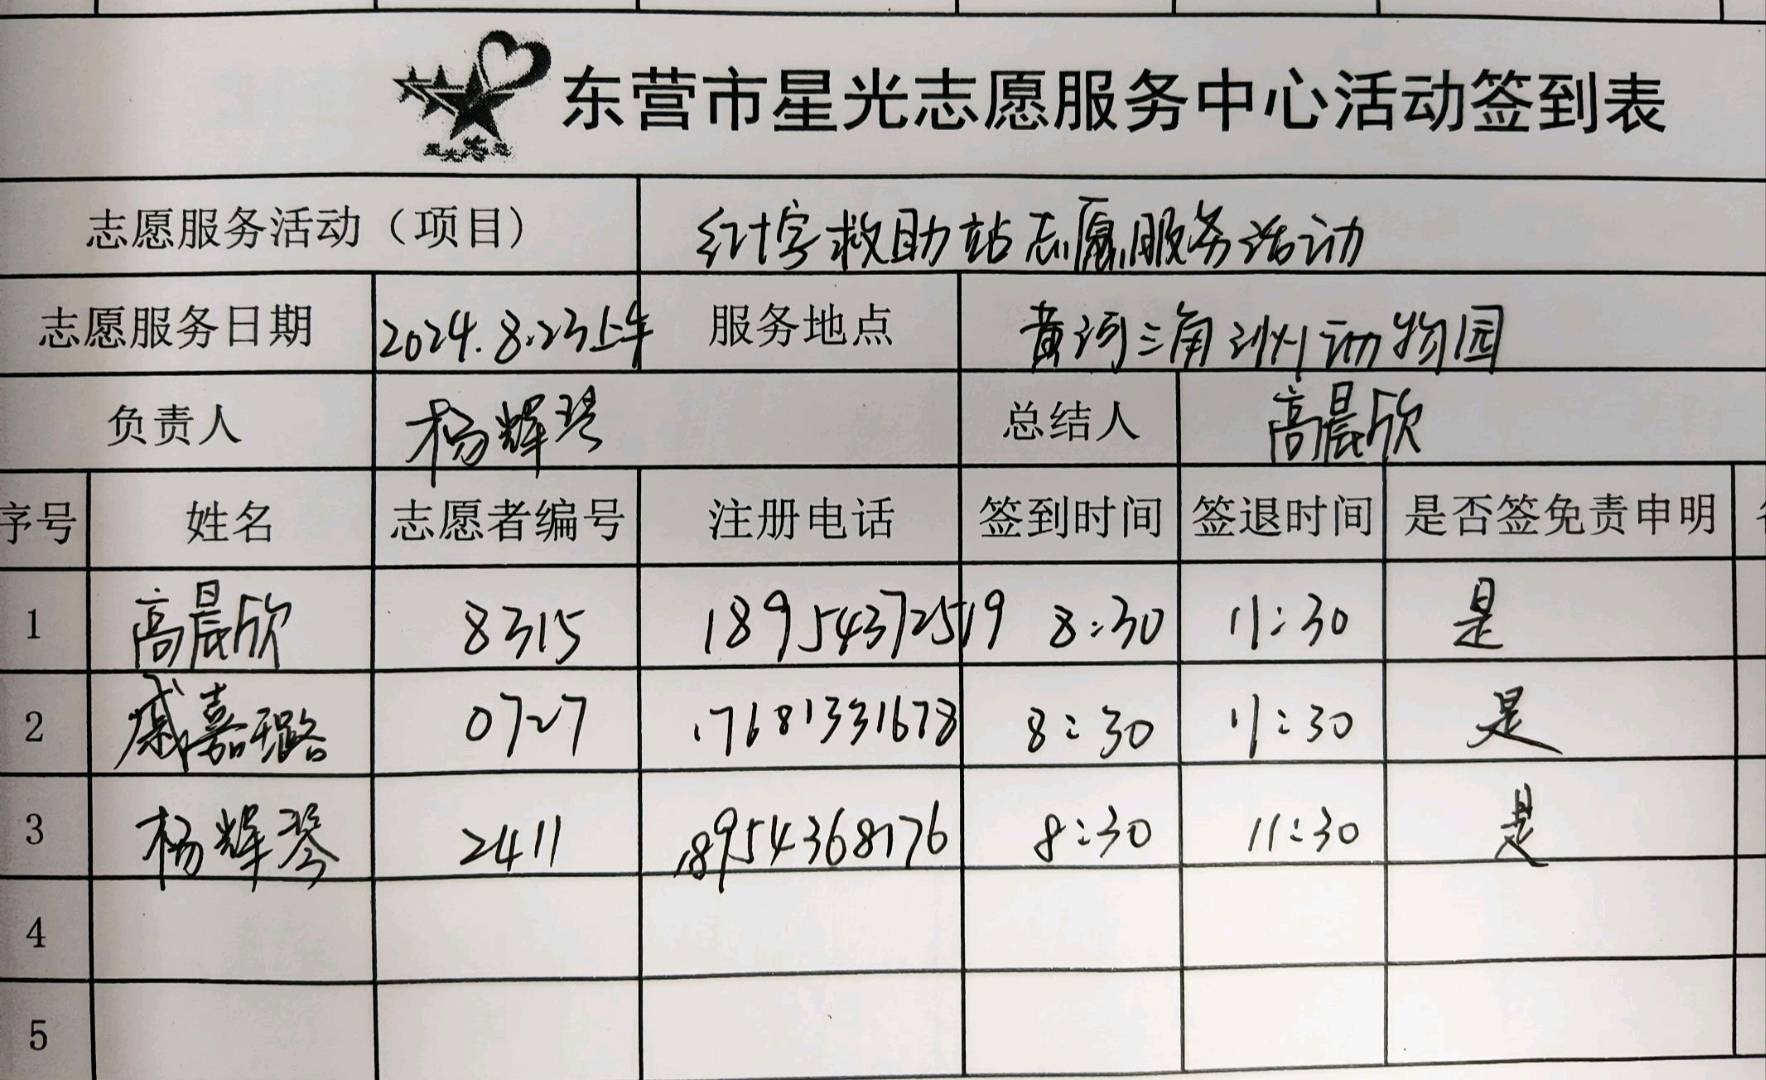 东营市星光志愿服务中心活动签到表
志愿服务活动（项目） 红十字救助站志愿服务活动
志愿服务日期 2024.8.23上午 服务地点 黄河三角洲动物园
负责人 杨辉琴 总结人 高晨欣
序号 姓名 志愿者编号 注册电话 签到时间 签退时间 是否签免责申明
1 高晨欣 8315 18954372519 8:30 11:30 是
2 戚嘉璐 0727 17681331678 8:30 11:30 是
3 杨辉琴 2411 18954368176 8:30 11:30 是
4
5